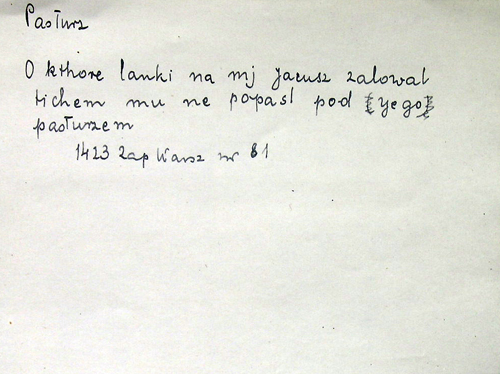 Pasturz
O kthore lanki na mj Jacusz zalowal
tichem mu ne popasl pod [yego]
pasturzem
1423 Zap Warsz nr 81